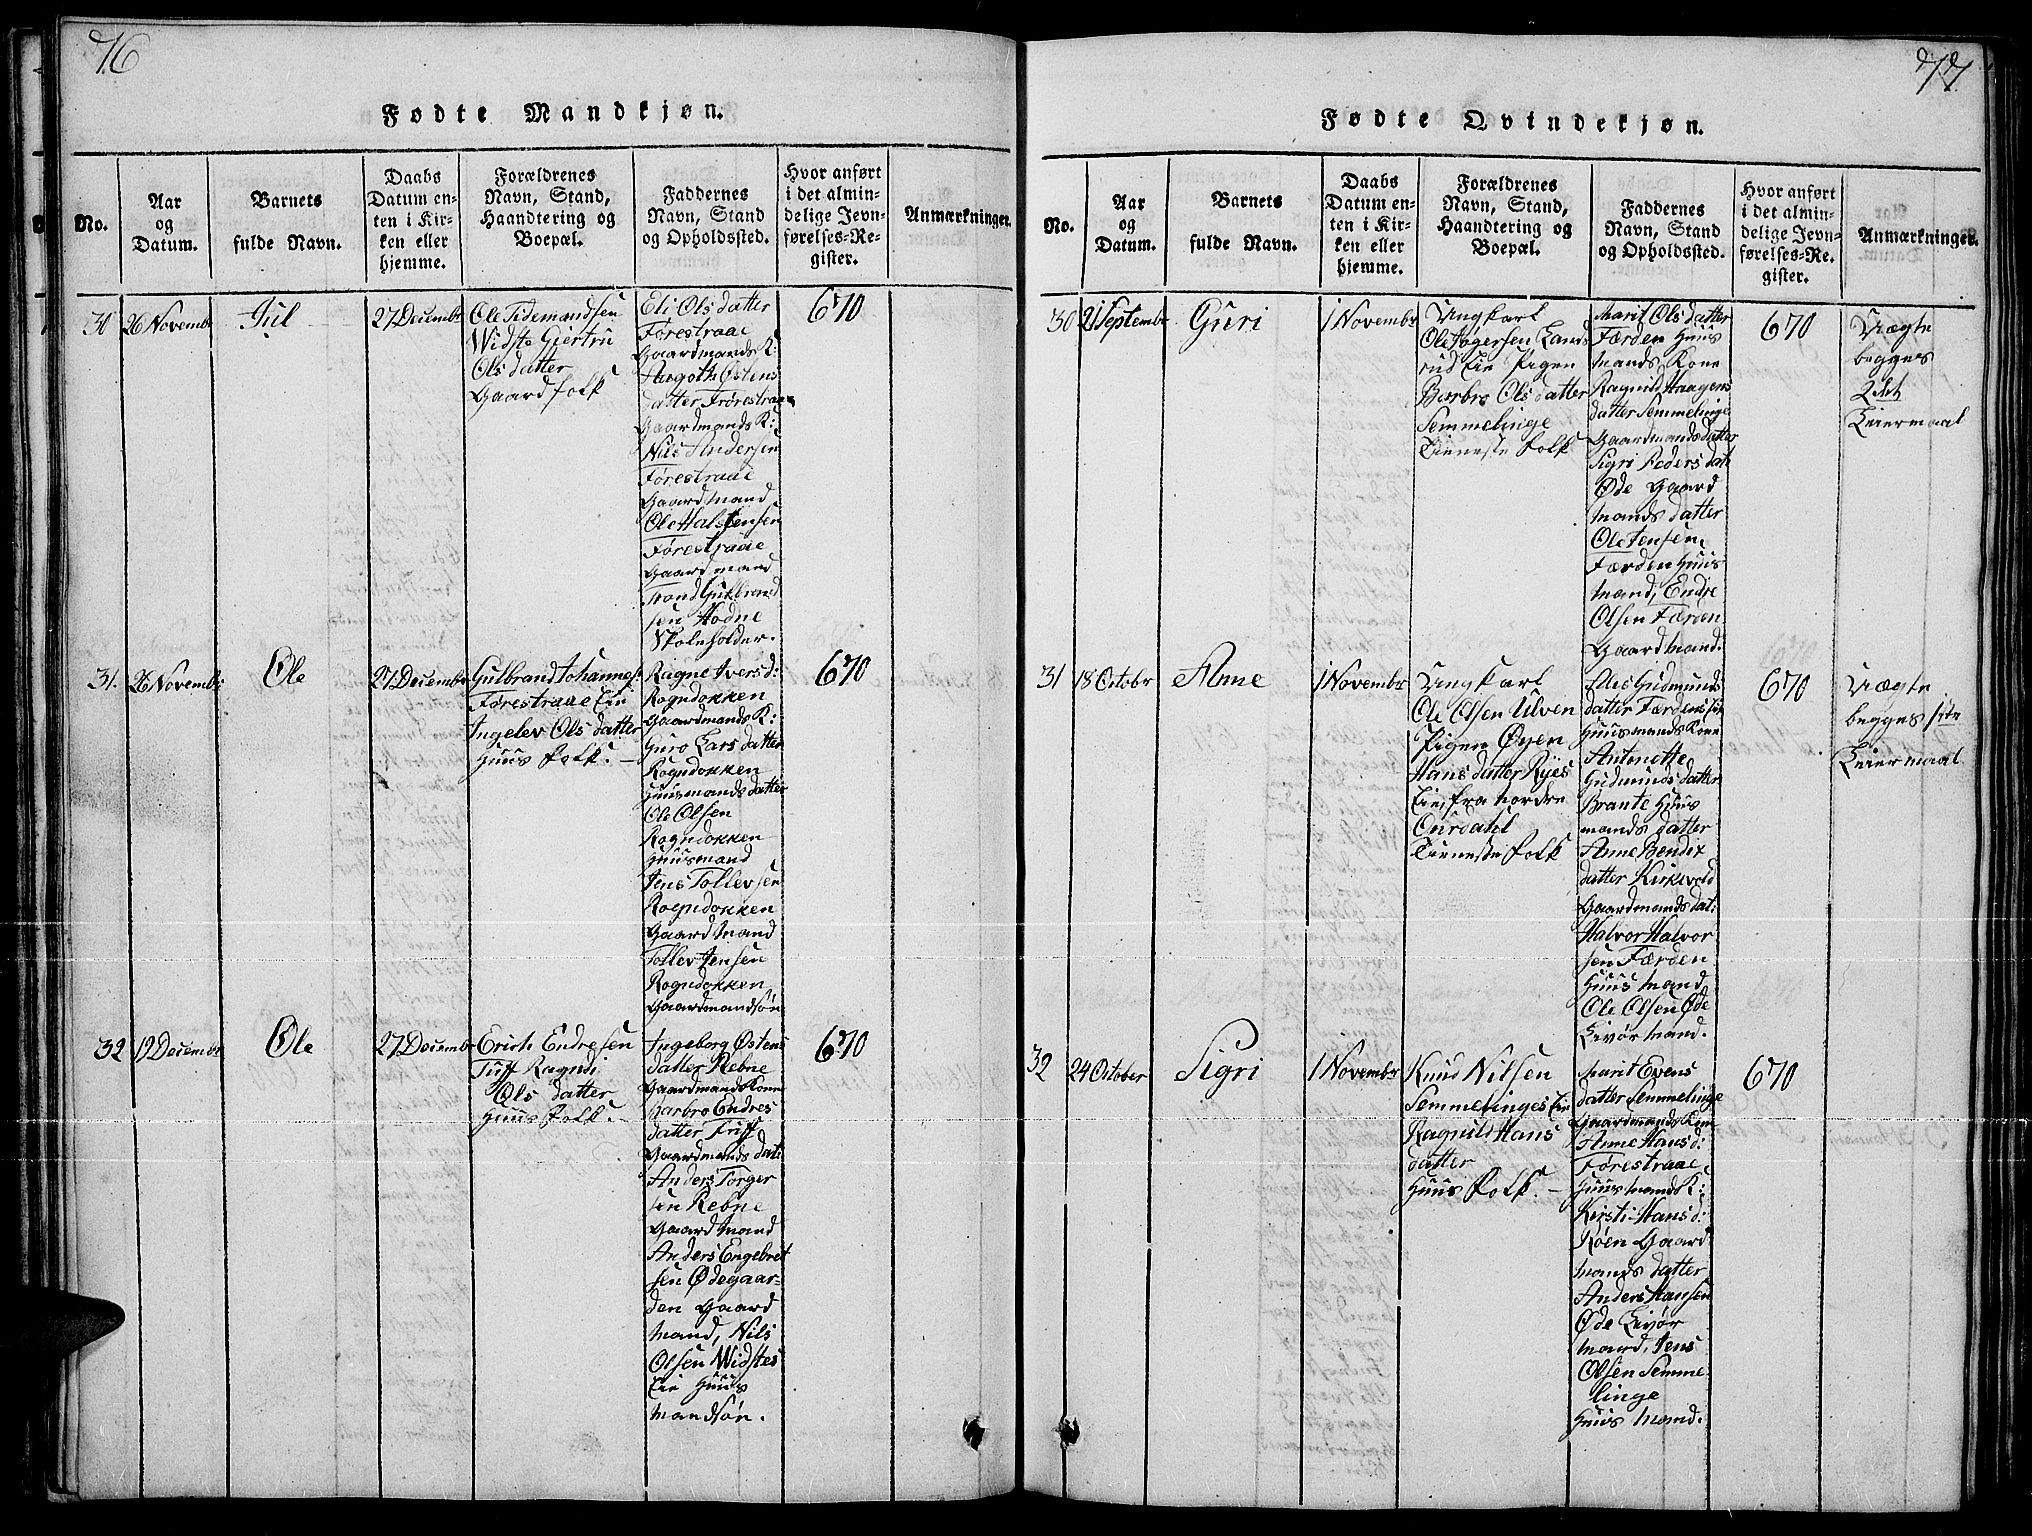 76
Fødte Mandkjøn.
No.
Aar
og
Datum.
Barnets
fulde Navn.
Daabs
Datum en-
ten i Kir-
ken eller
hjemme.
Forældrenes
Navn, Stand,
Haandtering og
Boepæl.
Faddernes
Navn, Stand
og Opholdssted.
Hvor anført
i det almin-
delige Jevn-
førelses-Re-
gister.
Anmærkninger.
30
26 Novembr
Juel
27 Decembr
Ole Tidemandsen
Widste Giertru
Olsdatter
Gaardfolk
Eli Olsdatter
Førestraae
Gaardmands K:
Margoth Østens
datter Frørestraae
Gaardmands K:
Nils Andersen
Førestraae
Gaardmand
Ole Halstensen
Førestraae
Gaardmand
Trond Gulbrand
sen Hodne
Skoleholder.
670
31.
26 Novembr
Ole
27 Decembr
Gulbrand Johannes:
Førestraae Eie
Ingelev Olsdatter
Huus folk.
Ragne Iversd:
Rogndokken
Gaardmands K:
Guro Larsdatter
Rogndokken
Huusmands datter
Ole Olsen
Rogndokken
Huusmand
Jens Tollevsen
Rogndokken
Gaardmand
Tollev Jensen
Rogndokken
Gaardmandsøn
670
32
19 Decembr
Ole
27 Decembr
Erich Endresen
Tuff Ragndi
Olsdatter
Huus folk.
Ingeborg Østens
datter Rebne
Gaardmands Kone
Barbro Endres
datter Friff
Gaardmands dat:
Anders Torger
sen Rebne
Gaardmand
Anders Engebret
sen Ødegaar-
den Gaard
mand, Nils
Olsen Widstes
Eie Huus
mandsøn.
670
77
Fødte Qvindekjøn.
No.
Aar
og
Datum.
Barnets
fulde Navn.
Daabs
Datum en-
ten i Kir-
ken eller
hjemme.
Forældrenes
Navn, Stand,
Haandtering og
Boepæl.
Faddernes
Navn, Stand
og Opholdssted.
Hvor anført
i det almin-
delige Jevn-
førelses-Re-
gister.
Anmærkninger.
30
21 Septembr
Guri
1 Novembr
Ungkarl
Ole Aagersen Lands
rud Eie Pigen
Barbro Olsdatter
Semmelinge
Tieneste folk
Marit Olsdatter
Færden Huus
mands Kone
Ragnild Haagens
datter Semmelinge
Gaardmandsdatter
Sigri Pedersdat:
Øde Gaard
mands datter
Ole Jensen
Færden Huus
mand, Endre
Olsen Færden
Gaardmand.
670
Uægte
begges
2det
Leiermaal
31
18 Octobr
Anne
1 Novembr
Ungkarl
Ole Olsen Ulven
Pigen Øyen
Hansdatter Ryes
Eie, fra nordre
Ourdahl
Tieneste folk
Elies Gudmunds
datter Færdens Eie
Huusmands Kone
Antonette
Gudmundsdatter
Brante Huus
mands datter
Anne Bendix
datter Kirkevold
Gaardmandsdat:
Halvor Halvor
sen Færden
Huus mand
Ole Olsen Øde
Livør mand.
670
Uægte
begges 1ste
Leiermaal
32
24 October
Sigri
1 Novembr
Knud Nilsen
Semmelinges Eie
Ragnil Hans
datter
Huus folk.
Marit Evens
datter Semmelinge
Gaardmands Kone
Anne Hansd:
Førestraae
Huusmands K:
Kirsti Hansd:
Røen Gaard
mands datter
Anders Hansen
Øde Livør
mand, Jens
Olsen Semme
linge
Huus mand.
670